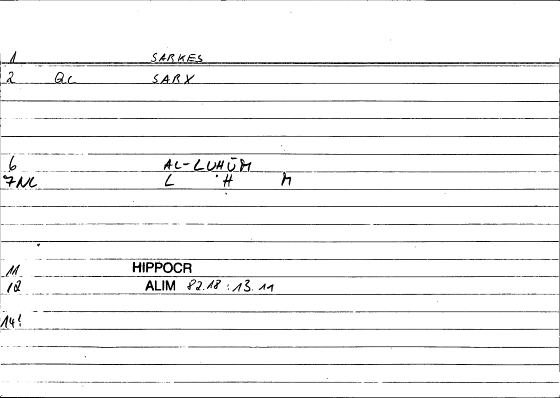 1 SARKES
2 QC SARX
6 AL-LUḤŪM
7NC L Ḥ M
11 HIPPOCR
12 ALIM 82.18 : 13.11
14!